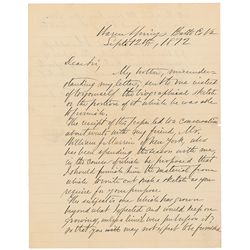 Warm Springs Bath Co Va
Sept. 12th, 1872
Dear Sir,
My brother, misunder-
standing my letter, sent me instead
of to yourself the biographical sketch
or the portion of it which he was able
to furnish.
The receipt of this paper led to a conversation
about it with my friend, Mr.
William of New York, who
has been spending the season with me,
in the course of which he proposed that
I should furnish him the material from
which to write out such a sketch as you
require for your purpose.
The subject is one which has grown
beyond what I expected and would keep on
growing, unless limit was put upon it,
so that you will may not reject the